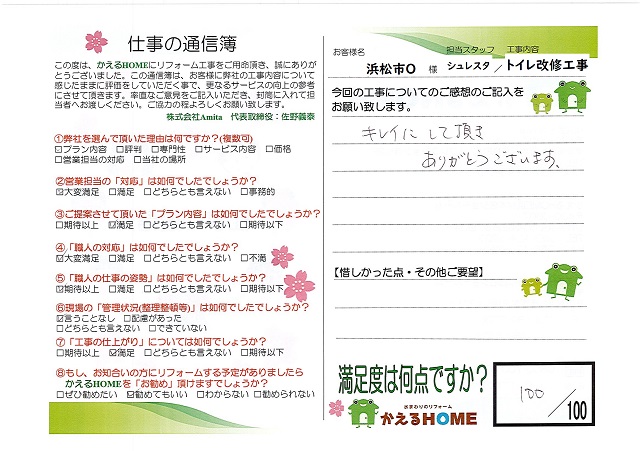 仕事の通信簿
この度は、かえるHOMEにリフォーム工事をご用命頂き、誠にありが
とうございました。この通信簿は、お客様に弊社の工事内容について
感じたままに評価をしていただく事で、更なるサービスの向上の参考
にさせて頂きます。率直なご意見をご記入いただき、封筒に入れて担
当者へお渡しください。ご協力の程よろしくお願い致します。
株式会社Amita 代表取締役:佐野義泰
①弊社を選んで頂いた理由は何ですか?(複数可)
☑プラン内容 □評判 □専門性 □サービス内容 □価格
□営業担当の対応 □当社の場所
②営業担当の「対応」は如何でしたでしょうか?
☑大変満足 □満足 □どちらとも言えない □事務的
③ご提案させて頂いた「プラン内容」は如何でしたでしょうか?
□期待以上 ☑満足 □どちらとも言えない □期待以下
④「職人の対応」は如何でしたでしょうか?
☑大変満足 □満足 □どちらとも言えない □不満
⑤「職人の仕事の姿勢」は如何でしたでしょうか?
☑期待以上 □満足 □どちらとも言えない □期待以下
⑥現場の「管理状況(整理整頓等)」は如何でしたでしょうか?
☑言うことなし □配慮があった
□どちらとも言えない □できていない
⑦「工事の仕上がり」については如何でしたでしょうか?
□期待以上 ☑満足 □どちらとも言えない □期待以下
⑧もし、お知合いの方にリフォームする予定がありましたら
かえるHOMEを「お勧め」頂けますでしょうか?
□ぜひ勧めたい ☑勧めてもいい □わからない □勧められない
お客様名 担当スタッフ 工事内容
浜松市O 様 シュレスタ / トイレ改修工事
今回の工事についてのご感想のご記入を
お願い致します。
キレイにして頂き
ありがとうございます。
【惜しかった点・その他ご要望】
満足度は何点ですか?
100 /100
水まわりのリフォーム
かえるHOME